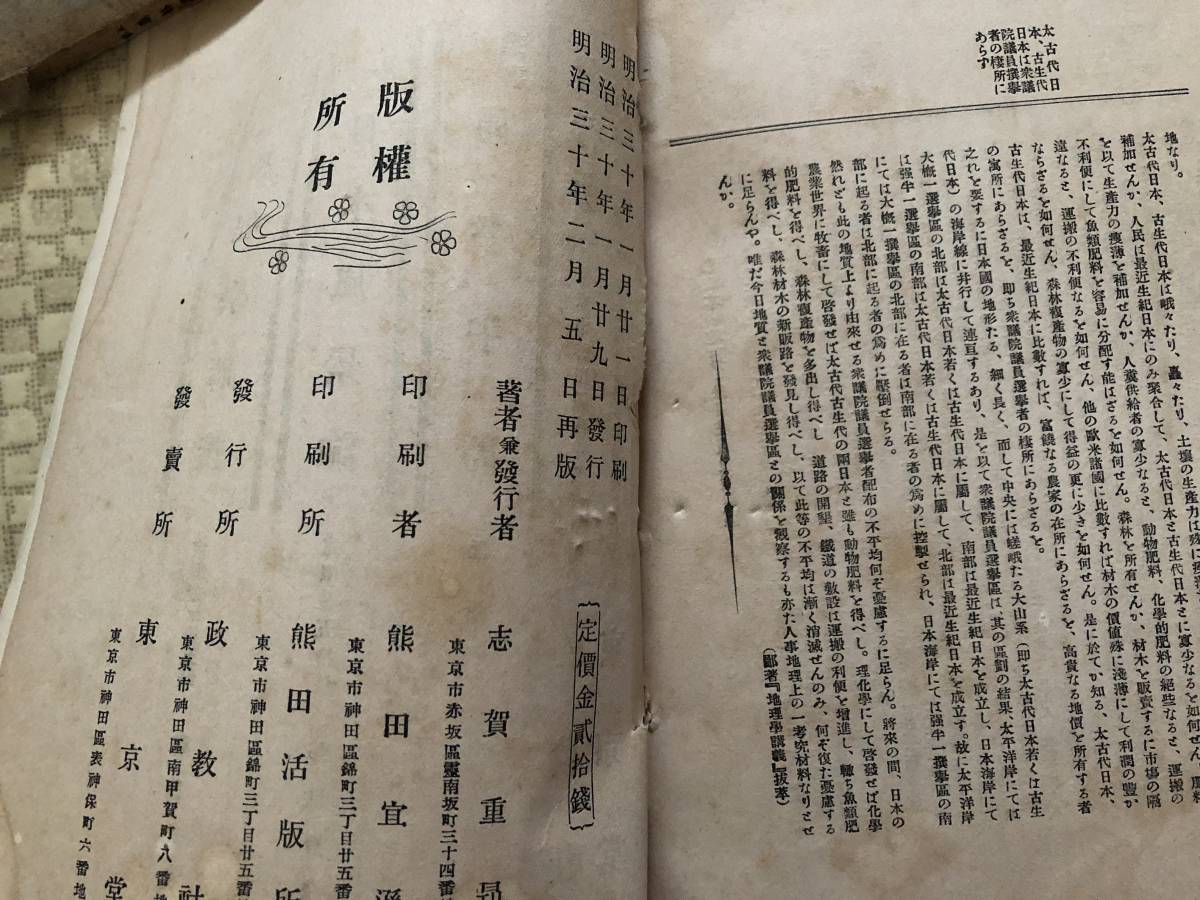 太古代日
本、古生代
日本は衆議
院議員撰擧
者の棲所に
あらず
地なり。
太古代日本、古生代日本は峨々たり、矗々たり、土壤の生產力は殊に
補加せんか、人民は最近生紀日本にのみ聚合して、太古代日本と古生代日本とに寡少なるを如何せん、肥料
を以て生產力の瘦薄を補加せんか、人糞供給者の寡少なると、動物肥料、化學的肥料の絕些なると、運搬の
不利便にして魚類肥料を容易に分配す能はざるを如何せん。森林を所有せんか、材木を販賣するに市場の隔
遠なると、運搬の不利便なるを如何せん、他の歐米諸國に比數すれば材木の價値殊に淺薄にして利潤の豐か
ならざるを如何せん、森林複產物の寡少にして得益の更に少きを如何せん。是に於てか知る、太古代日本、
古生代日本は、最近生紀日本に比數すれば、富饒なる農家の在所にあらざるを、高貴なる地價を所有する者
の寓所にあらざるを、即ち衆議院議員選擧者の棲所にあらざるを。
之れを要するに日本國の地形たる、細く長く、而して中央には嵯峨たる大山系(即ち太古代日本若くは古生
代日本)の海岸線に幷行して連亙するあり、是を以て衆議院議員選擧區は、其の區劃の結果、太平洋岸にては
大槪一選擧區の北部は太古代日本若くは古生代日本に屬して、南部は最近生紀日本を成立し、日本海岸にて
は强半一選擧區の南部は太古代日本若くは古生代日本に屬して、北部は最近生紀日本を成立す。故に太平洋岸
にては大槪一撰擧區の北部に在る者は南部に在る者の爲めに控掣せられ、日本海岸にては强半一撰擧區の南
部に起る者は北部に起る者の爲めに壓倒せらる。
然れども此の地質上より由來せる衆議院議員選擧者配布の不平均何ぞ憂慮するに足らん。將來の間、日本の
農業世界に牧畜にして啓發せば太古代古生代の兩日本と雖も動物肥料を得べし。理化學にして啓發せば化學
的肥料を得べし、森林複產物を多出し得べし、道路の開墾、鐵道の敷設は運搬の利便を增進し、轉ち魚類肥
料を得べし、森林材木の新販路を發見し得べし、以て此等の不平均は漸く消滅せんのみ、何ぞ復た憂慮する
に足らんや。唯だ今日地質と衆議院議員選擧區との關係を觀察するも亦た人事地理上の一考究材料なりとせ
んか。
(鄙著『地理學講義』拔萃)
明治三十年一月廿一日印刷
明治三十年一月廿九日發行
明治三十年二月五日再版
定價金貳拾錢
版權
所有
著者兼發行者 志賀重昂
東京市赤坂區靈南坂町三十四番
印刷者 熊田宜遜
東京市神田區錦町三丁目廿五番
印刷所 熊田活版所
東京市神田區錦町三丁目廿五番
發行所 政教社
東京市神田區南甲賀町八番地
發賣所 東京堂
東京市神田區表神保町六番地